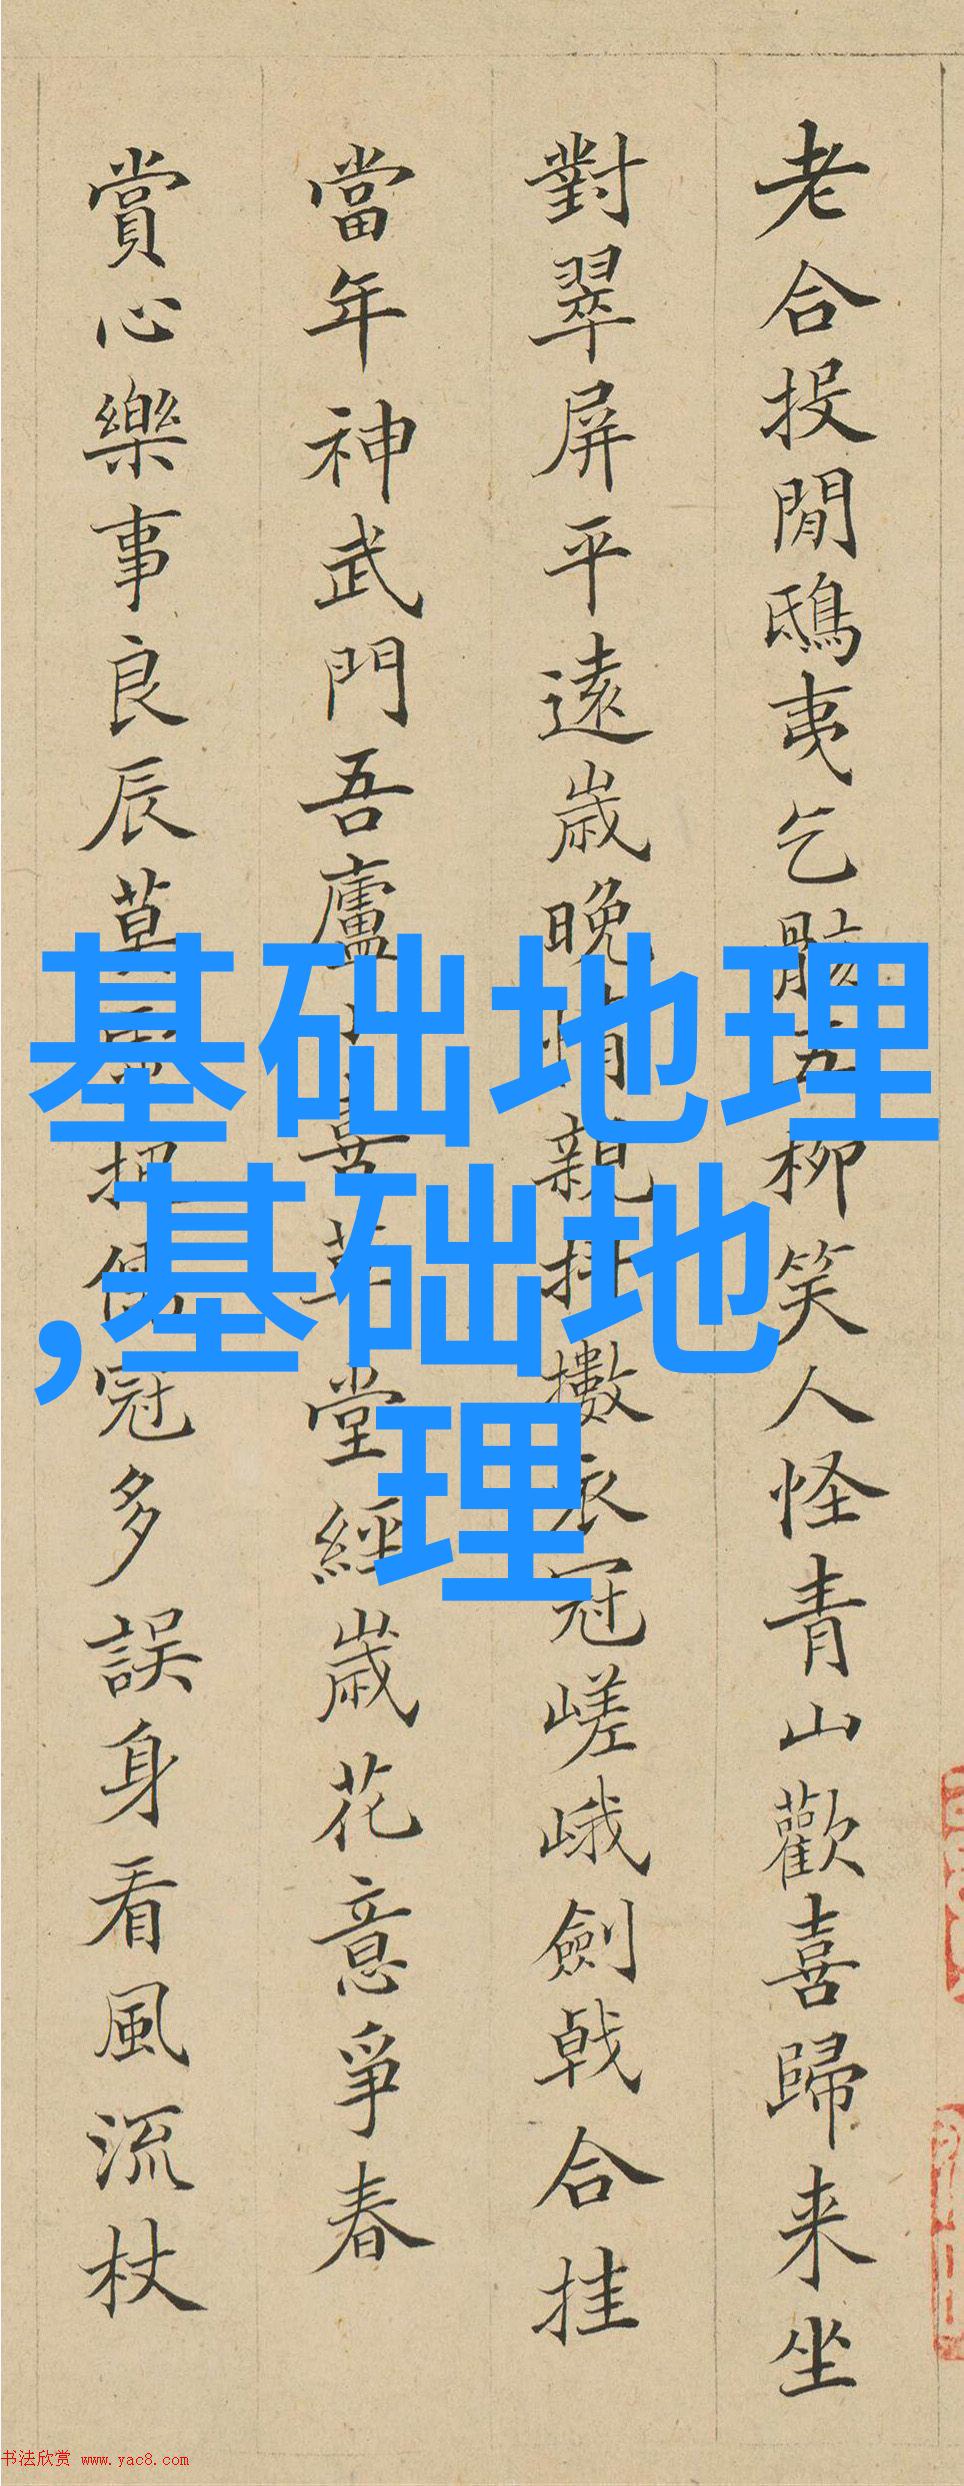 老合投閒鴟夷乞骸五柳笑人怪青山歡喜歸来坐
對翠屏平遠歲晚情親排擻衣冠嵯峨劍戟合挂
當年神武門吾廬小喜草堂經歲花意爭春
賞心樂事良辰莫把儒冠多誤身看風流杖
基础地理
,基础地
理
书法欣赏 www.yac8.com